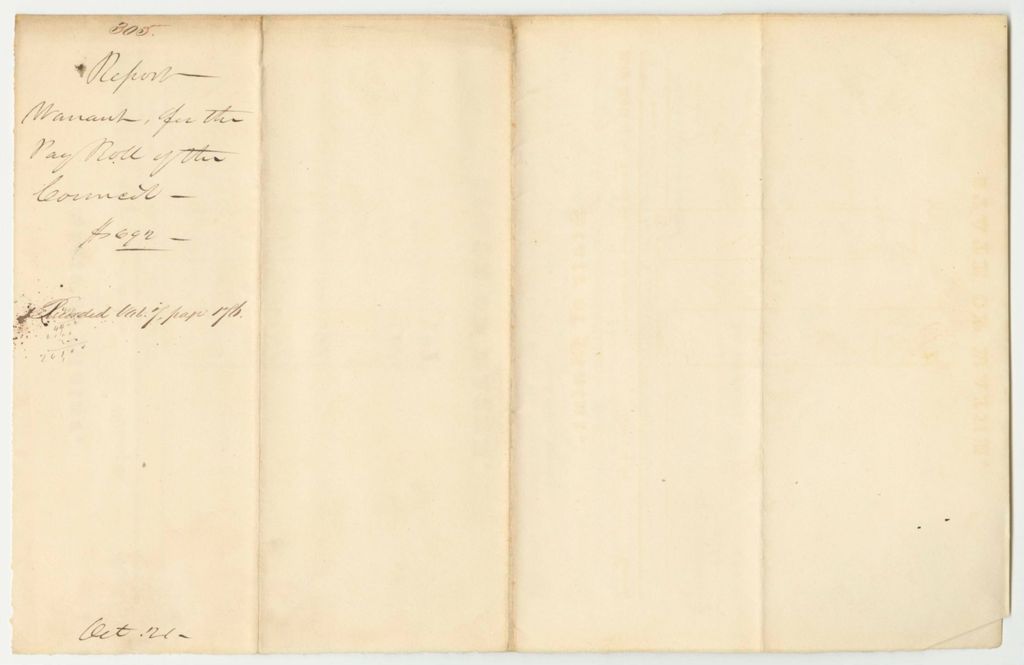 305.
Report
Warrant, for the
Pay Roll of the
Council —
$692 —
Recorded Vol. 7. page 176.
Oct. 21 —